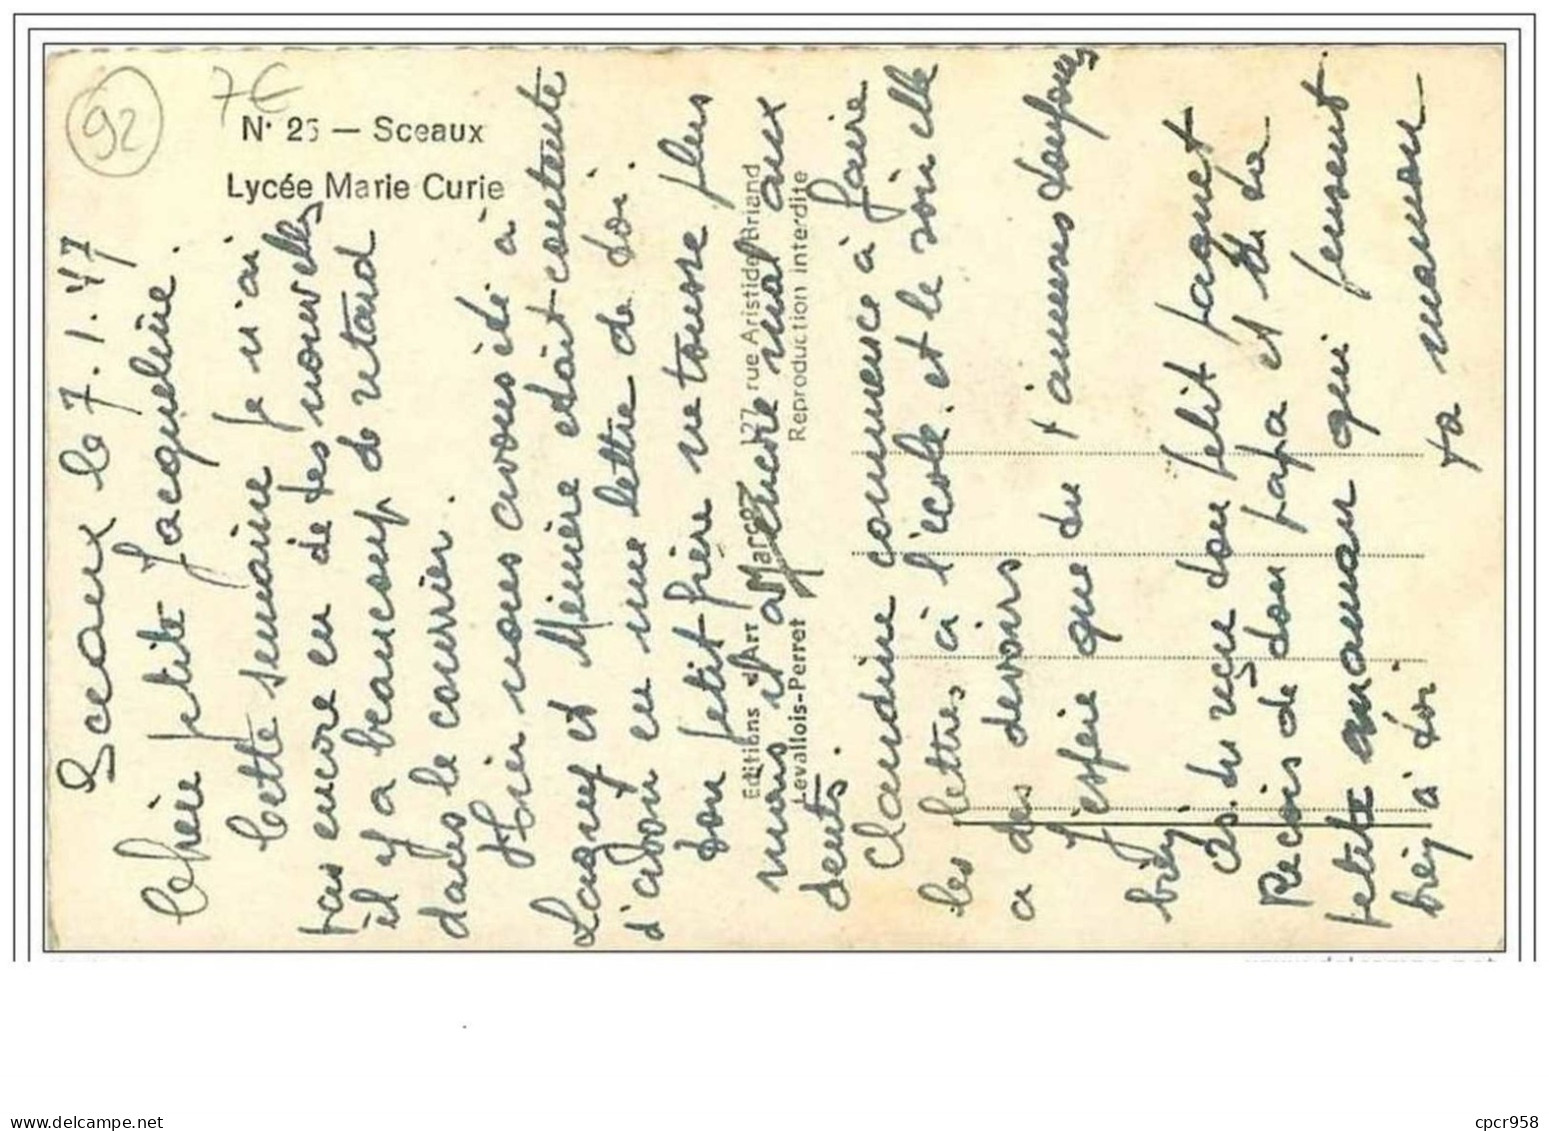 92
7€
N° 25 — Sceaux
Lycée Marie Curie
Editions d'Art Marcel 127, rue Aristide Briand
Levallois-Perret Reproduction interdite
Sceaux le 7.1.47
Chère petite Jacqueline.
Cette semaine je n'ai
pas encore eu de tes nouvelles
il y a beaucoup de retard
dans le courrier.
Hier nous avons été à
Lagny et Mémère était contente
d'avoir eu une lettre de toi.
Ton petit frère ne tousse plus
mais il a encore mal aux
dents.
Claudine commence à faire
les lettres à l'école. et le soir elle
a des devoirs
J'espère que tu t'amuses toujours
bien
As-tu reçu ton petit paquet
Reçois de ton papa et de ta
petite maman qui pensent
bien à toi
ta maman
cpcr958